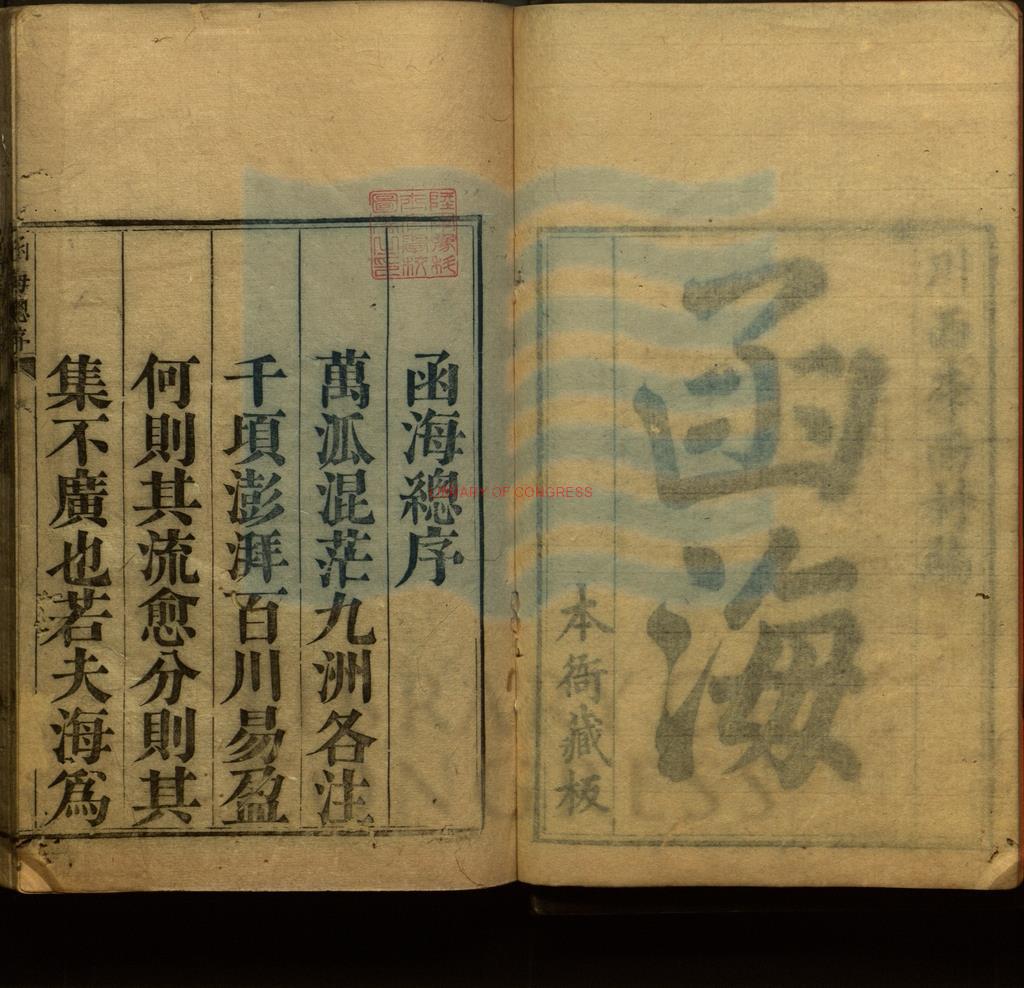 川西李
函海
本衙藏板
函海總序
萬派混茫九洲各注
千頃澎湃百川易盈
何則其流愈分則其
集不廣也若夫海爲
函海總序
LIBRARY OF CONGRESS